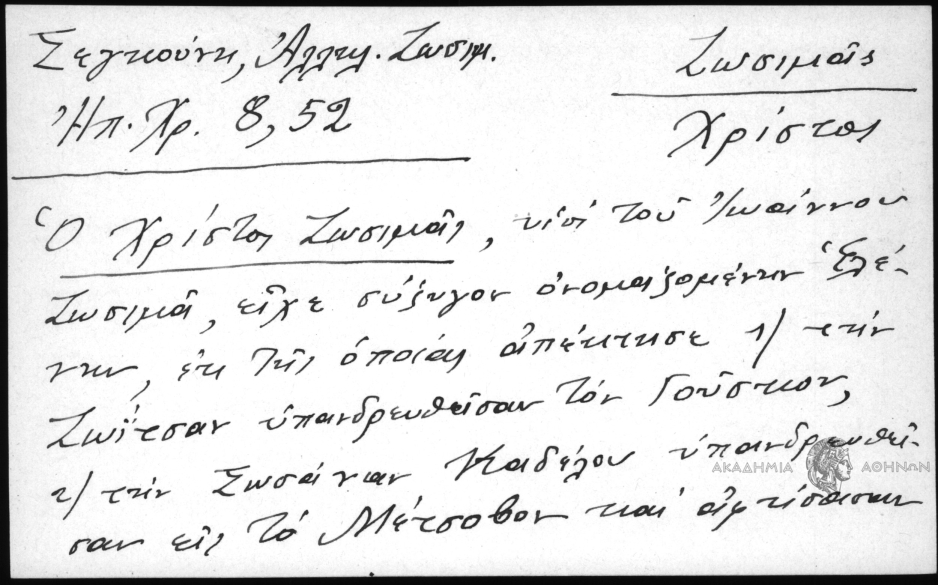 Σεγκούνη, Ἀλληλ. Ζωσιμ.
Ζωσιμᾶς
Ἠπ. Χρ. 8, 52
Χρίστος
Ὁ Χρίστος Ζωσιμᾶς, υἱὸς τοῦ Ἰωάννου
Ζωσιμᾶ, εἶχε σύζυγον ὀνομαζομένην Ἑλέ-
νην, ἐκ τῆς ὁποίας ἀπέκτησε 1) τὴν
Ζωΐτσαν ὑπανδρευθεῖσαν τὸν Γοῦστιον,
2) τὴν Σωσάναν ὑπανδρευθεῖ-
σαν εἰς τὸ Μέτσοβον καὶ
ΑΚΑΔΗΜΙΑ ΑΘΗΝΩΝ